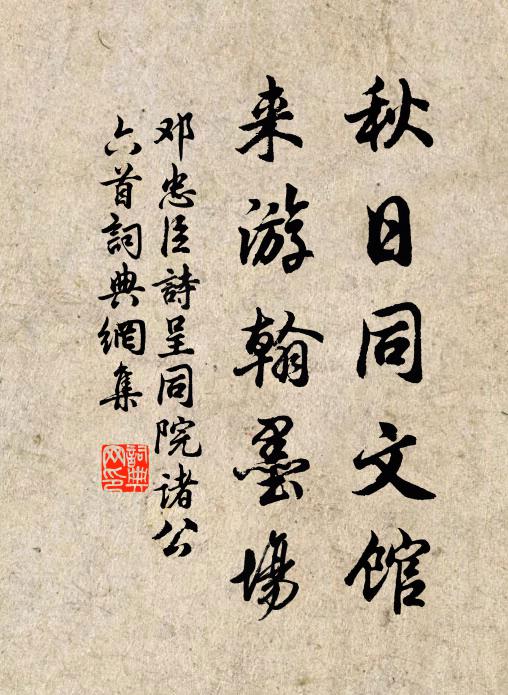 秋日同文館
来游翰墨場
邓忠臣詩呈同院诸公
六首詞典網集
詞典网印